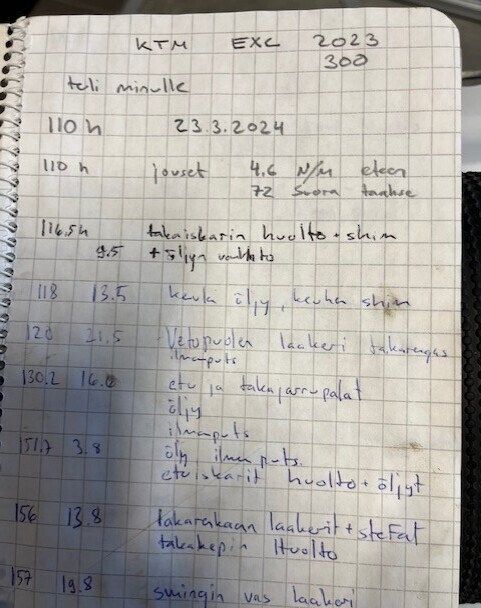 KTM EXC 2023
300
tuli minulle
110 h 23.3.2024
110 h jouset 4.6 N/m eteen
72 suora taakse
116.5h takaiskarin huolto + shim
9.5 + öljyn vaihto
118 13.5 öljy, shim
120 21.5 Vetopuolen laakeri takarengas
ilmanputs
130.2 16.6 etu ja takajarrupalat
öljy
ilmanputs
151.7 3.8 öljy ilman puts.
etuiskarit huolto + öljyt
156 13.8 takarakaan laakerit + stefat
takakepin Huolto
157 19.8 swingin vas laakeri